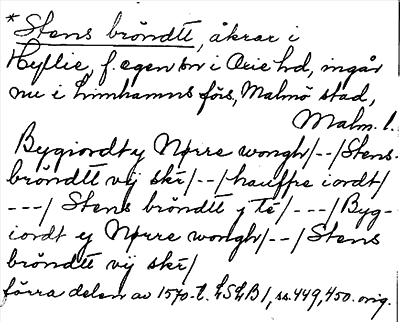 *Stens bröndtt, åkrar i
Hyllie, f. egen sn i Oxie hd, ingår
nu i Limhamns förs, Malmö stad,
Malm. l.
Bygiordt y Nørre wongh/--/Stens-
bröndtt vij skr/--/hauffre iordt/
---/ Stens bröndtt y té/---/Byg-
iordt y Nørre wongh/--/Stens
bröndtt vij skr/
förra delen av 1570-t. LSLB1, ss. 449, 450. orig.